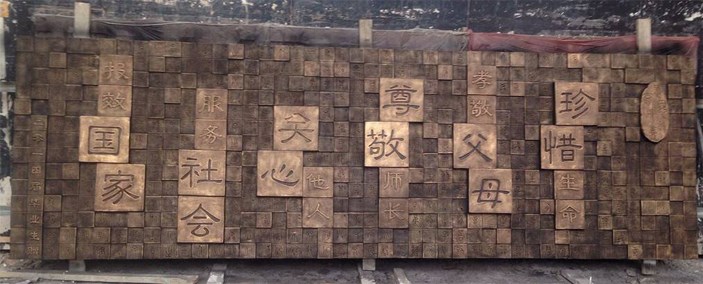 珍惜生命
孝敬父母
尊敬师长
关心他人
服务社会
报效国家